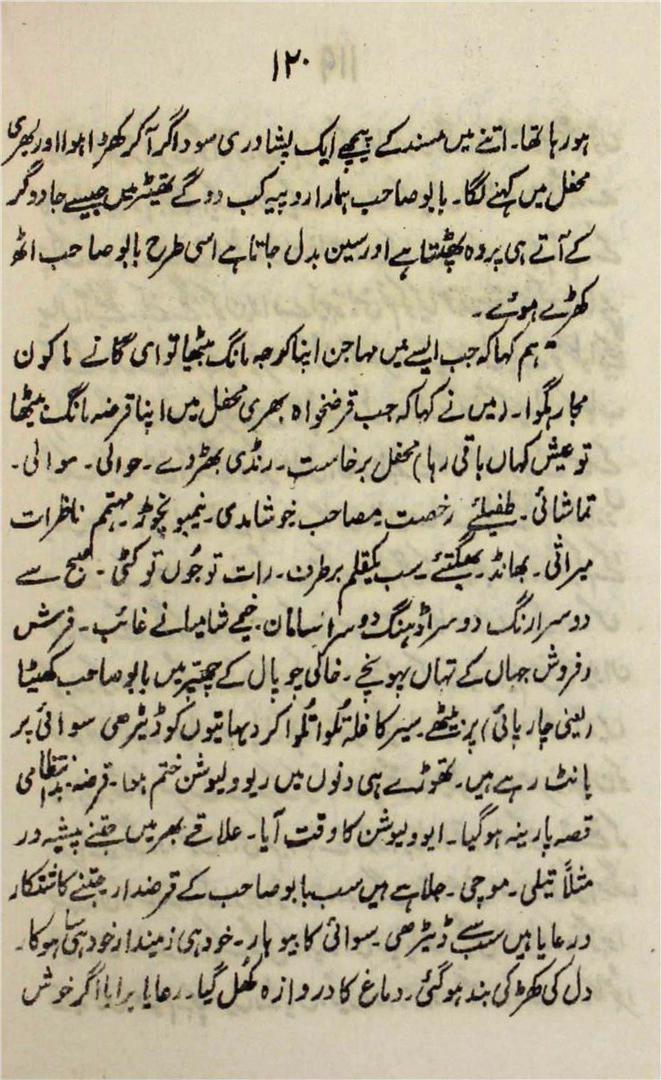 ۱۲۰
ہورہا تھا۔ اتنے میں مسند کے پیچھے ایک پشاوری سوداگر آکر کھڑا ہوا اور بھری
محفل میں کہنے لگا۔ بابو صاحب ہمارا روپیہ کب دوگے تھیٹر میں جیسے جادوگر
کے آتے ہی پردہ پھٹتا ہے اور سین بدل جاتا ہے اسی طرح بابو صاحب اٹھ
کھڑے ہوئے۔
ہم کہا کہ جب ایسے میں مہاجن اپنا کرجہ مانگ بیٹھا تو ای گانے ما کون
مجا رہگوا۔ (میں نے کہا کہ جب قرضخواہ بھری محفل میں اپنا قرضہ مانگ بیٹھا
تو عیش کہاں باقی رہا) محفل برخاست۔ رنڈی بھڑوے۔ حوالی۔ موالی۔
تماشائی۔ طفیلئے رخصت مصاحب خوشامدی۔ نیمبو نچوڑ مہتمم ناظرات
میراثی۔ بھانڈ۔ بھگتئے۔ سب یکقلم برطرف۔ رات تو جُوں تو کٹی۔ صبح سے
دوسرا رنگ دوسرا ڈہنگ دوسرا سامان۔ خیمے شامیانے غائب۔ فرش
فروش جہاں کے تہاں پہونچے۔ خاکی چوپال کے چھپر میں بابو صاحب کھٹیا
(یعنی چارپائی) پر بیٹھے سیر کا غلہ تُلوا تُلوا کر دیہاتیوں کو ڈیڑھی سوائی پر
بانٹ رہے ہیں۔ تھوڑے ہی دنوں میں ریوولیوشن ختم ہوا۔ قرضہ بدانتظامی
قصہ پارینہ ہوگیا۔ ایوولیوشن کا وقت آیا۔ علاقے بھر میں جتنے پیشہ ور
مثلاً تیلی۔ موچی۔ جلاہے ہیں سب بابو صاحب کے قرضدار جتنے کاشتکار
و رعایا ہیں سب سے ڈیڑھی۔ سوائی کا بیوہار۔ خود ہی زمیندار خود ہی ساہوکار۔
دل کی کھڑکی بند ہوگئی۔ دماغ کا دروازہ کُھل گیا۔ رعایا برایا اگر خوش